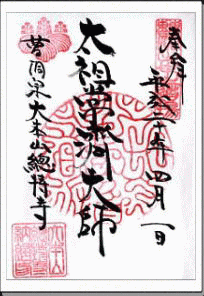 奉拝
平成二十年四月一日
太祖常済大師
曹洞宗大本山總持寺